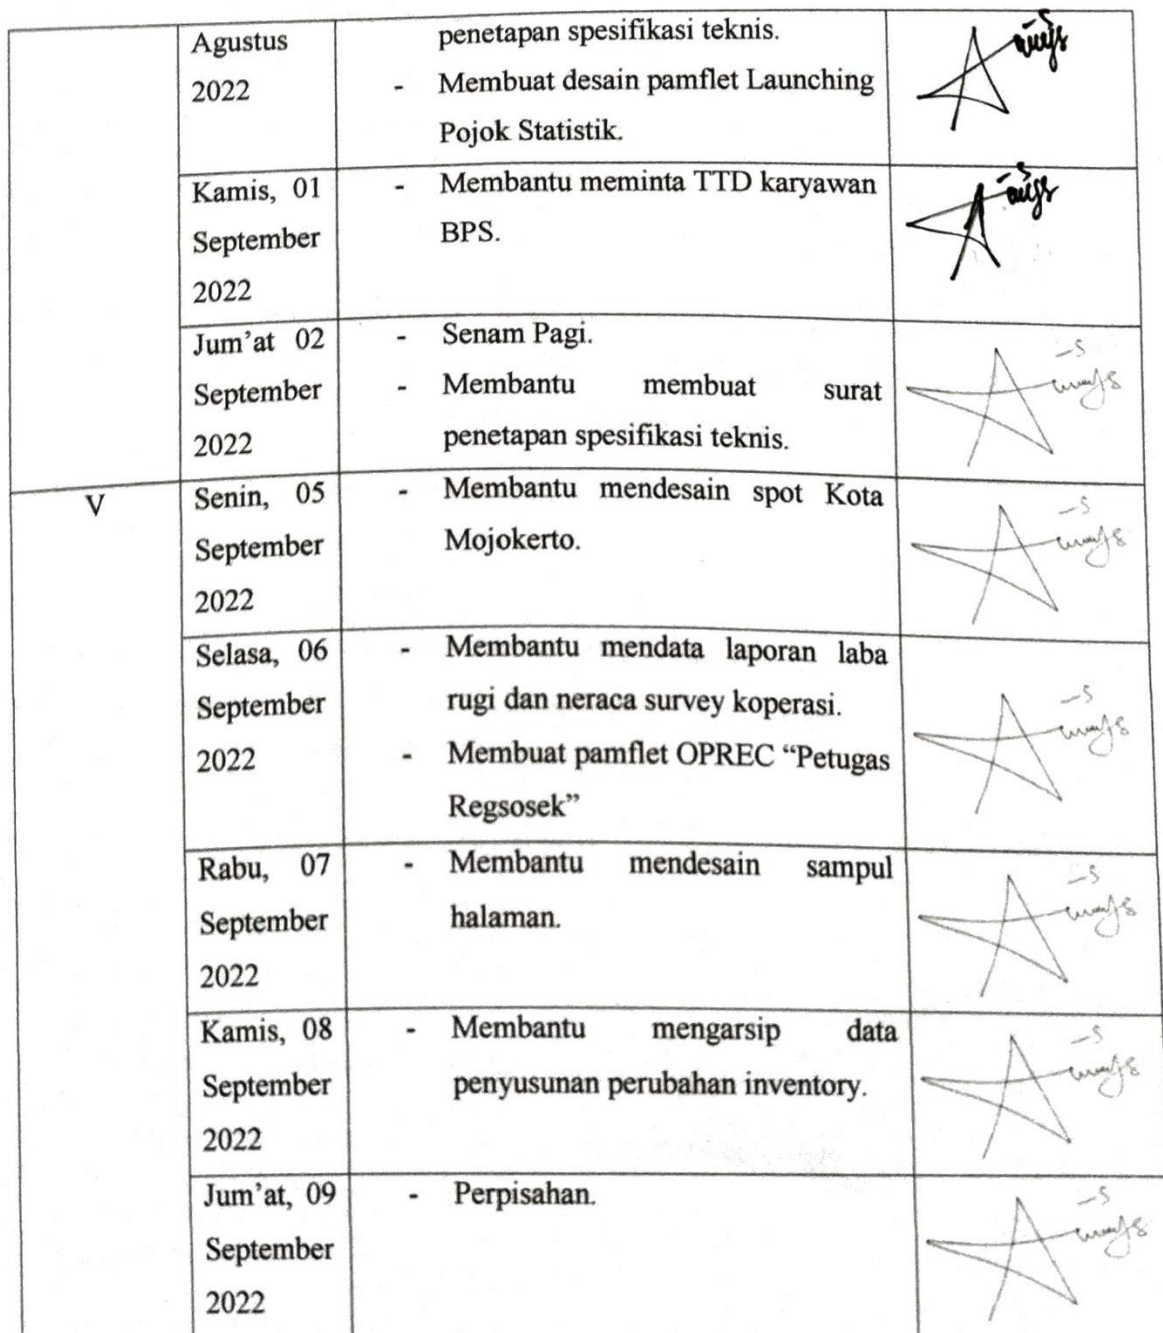 Agustus
2022
penetapan spesifikasi teknis.
- Membuat desain pamflet Launching
Pojok Statistik.
Kamis, 01
September
2022
- Membantu meminta TTD karyawan
BPS.
Jum’at 02
September
2022
- Senam Pagi.
- Membantu membuat surat
penetapan spesifikasi teknis.
V
Senin, 05
September
2022
- Membantu mendesain spot Kota
Mojokerto.
Selasa, 06
September
2022
- Membantu mendata laporan laba
rugi dan neraca survey koperasi.
- Membuat pamflet OPREC “Petugas
Regsosek”
Rabu, 07
September
2022
- Membantu mendesain sampul
halaman.
Kamis, 08
September
2022
- Membantu mengarsip data
penyusunan perubahan inventory.
Jum’at, 09
September
2022
- Perpisahan.